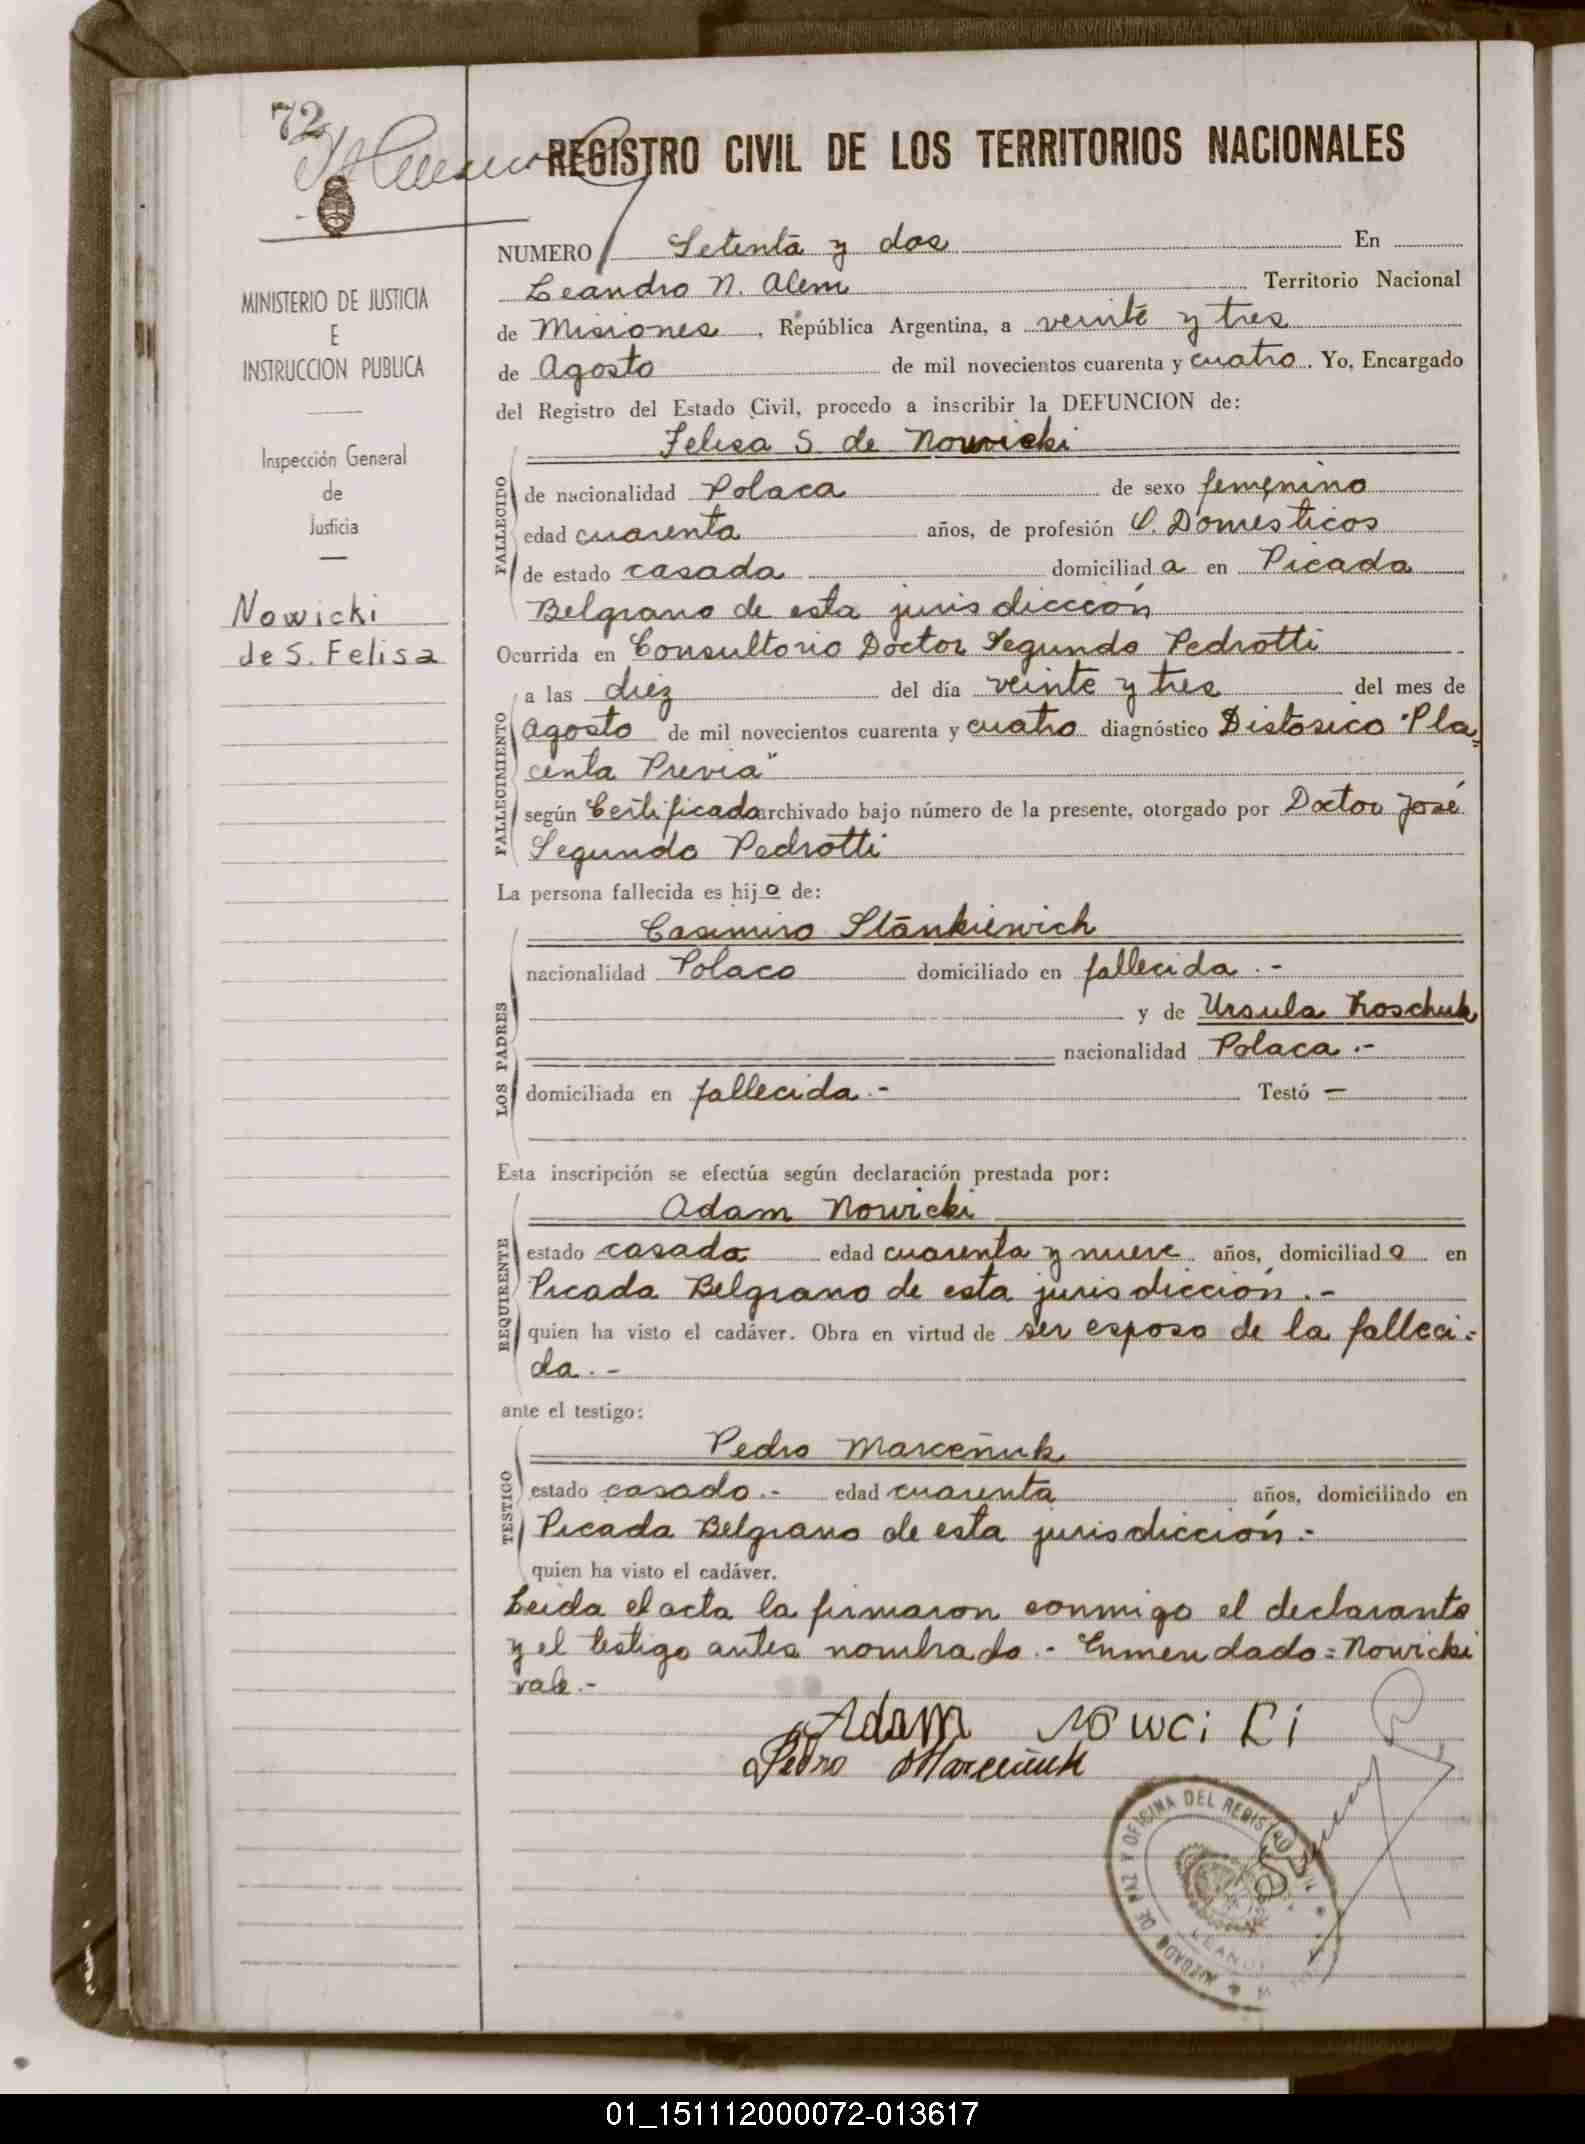 72
REGISTRO CIVIL DE LOS TERRITORIOS NACIONALES
MINISTERIO DE JUSTICIA
E
INSTRUCCION PUBLICA
Inspección General
de
Justicia
Nowicki
de S. Felisa
NUMERO Setenta y dos En
Leandro N. Alem Territorio Nacional
de Misiones, República Argentina, a veinte y tres
de Agosto de mil novecientos cuarenta y cuatro. Yo, Encargado
del Registro del Estado Civil, procedo a inscribir la DEFUNCION de:
Felisa S. de Nowicki
FALLECIDO
de nacionalidad Polaca de sexo femenino
edad cuarenta años, de profesión Q. Domésticos
de estado casada domiciliada en Picada
Belgrano de esta jurisdicccón
Ocurrida en Consultorio Doctor Segundo Pedrotti
FALLECIMIENTO
a las diez del día veinte y tres del mes de
Agosto de mil novecientos cuarenta y cuatro diagnóstico Distosico "Pla=
centa Previa"
según Certificado archivado bajo número de la presente, otorgado por Doctor José
Segundo Pedrotti
La persona fallecida es hijo de:
LOS PADRES
Casimiro Stankiewich
nacionalidad Polaco domiciliado en fallecida.-
y de Ursula Koschuk
nacionalidad Polaca.-
domiciliada en fallecida.- Testó —
Esta inscripción se efectúa según declaración prestada por:
REQUIRENTE
Adam Nowicki
estado casado edad cuarenta y nueve años, domiciliado en
Picada Belgrano de esta jurisdicción.-
quien ha visto el cadáver. Obra en virtud de ser esposo de la falleci=
da.-
ante el testigo:
TESTIGO
Pedro Marceñuk
estado casado.- edad cuarenta años, domiciliado en
Picada Belgrano de esta jurisdicción.-
quien ha visto el cadáver.
Leida el acta la firmaron conmigo el declarante
y el testigo antes nombrado.- Enmendado=Nowicki
vale.-
Adam Nowciki
Pedro Marceñuk
JUZGADO DE PAZ Y OFICINA DEL REGIS
LEAND
01_151112000072-013617